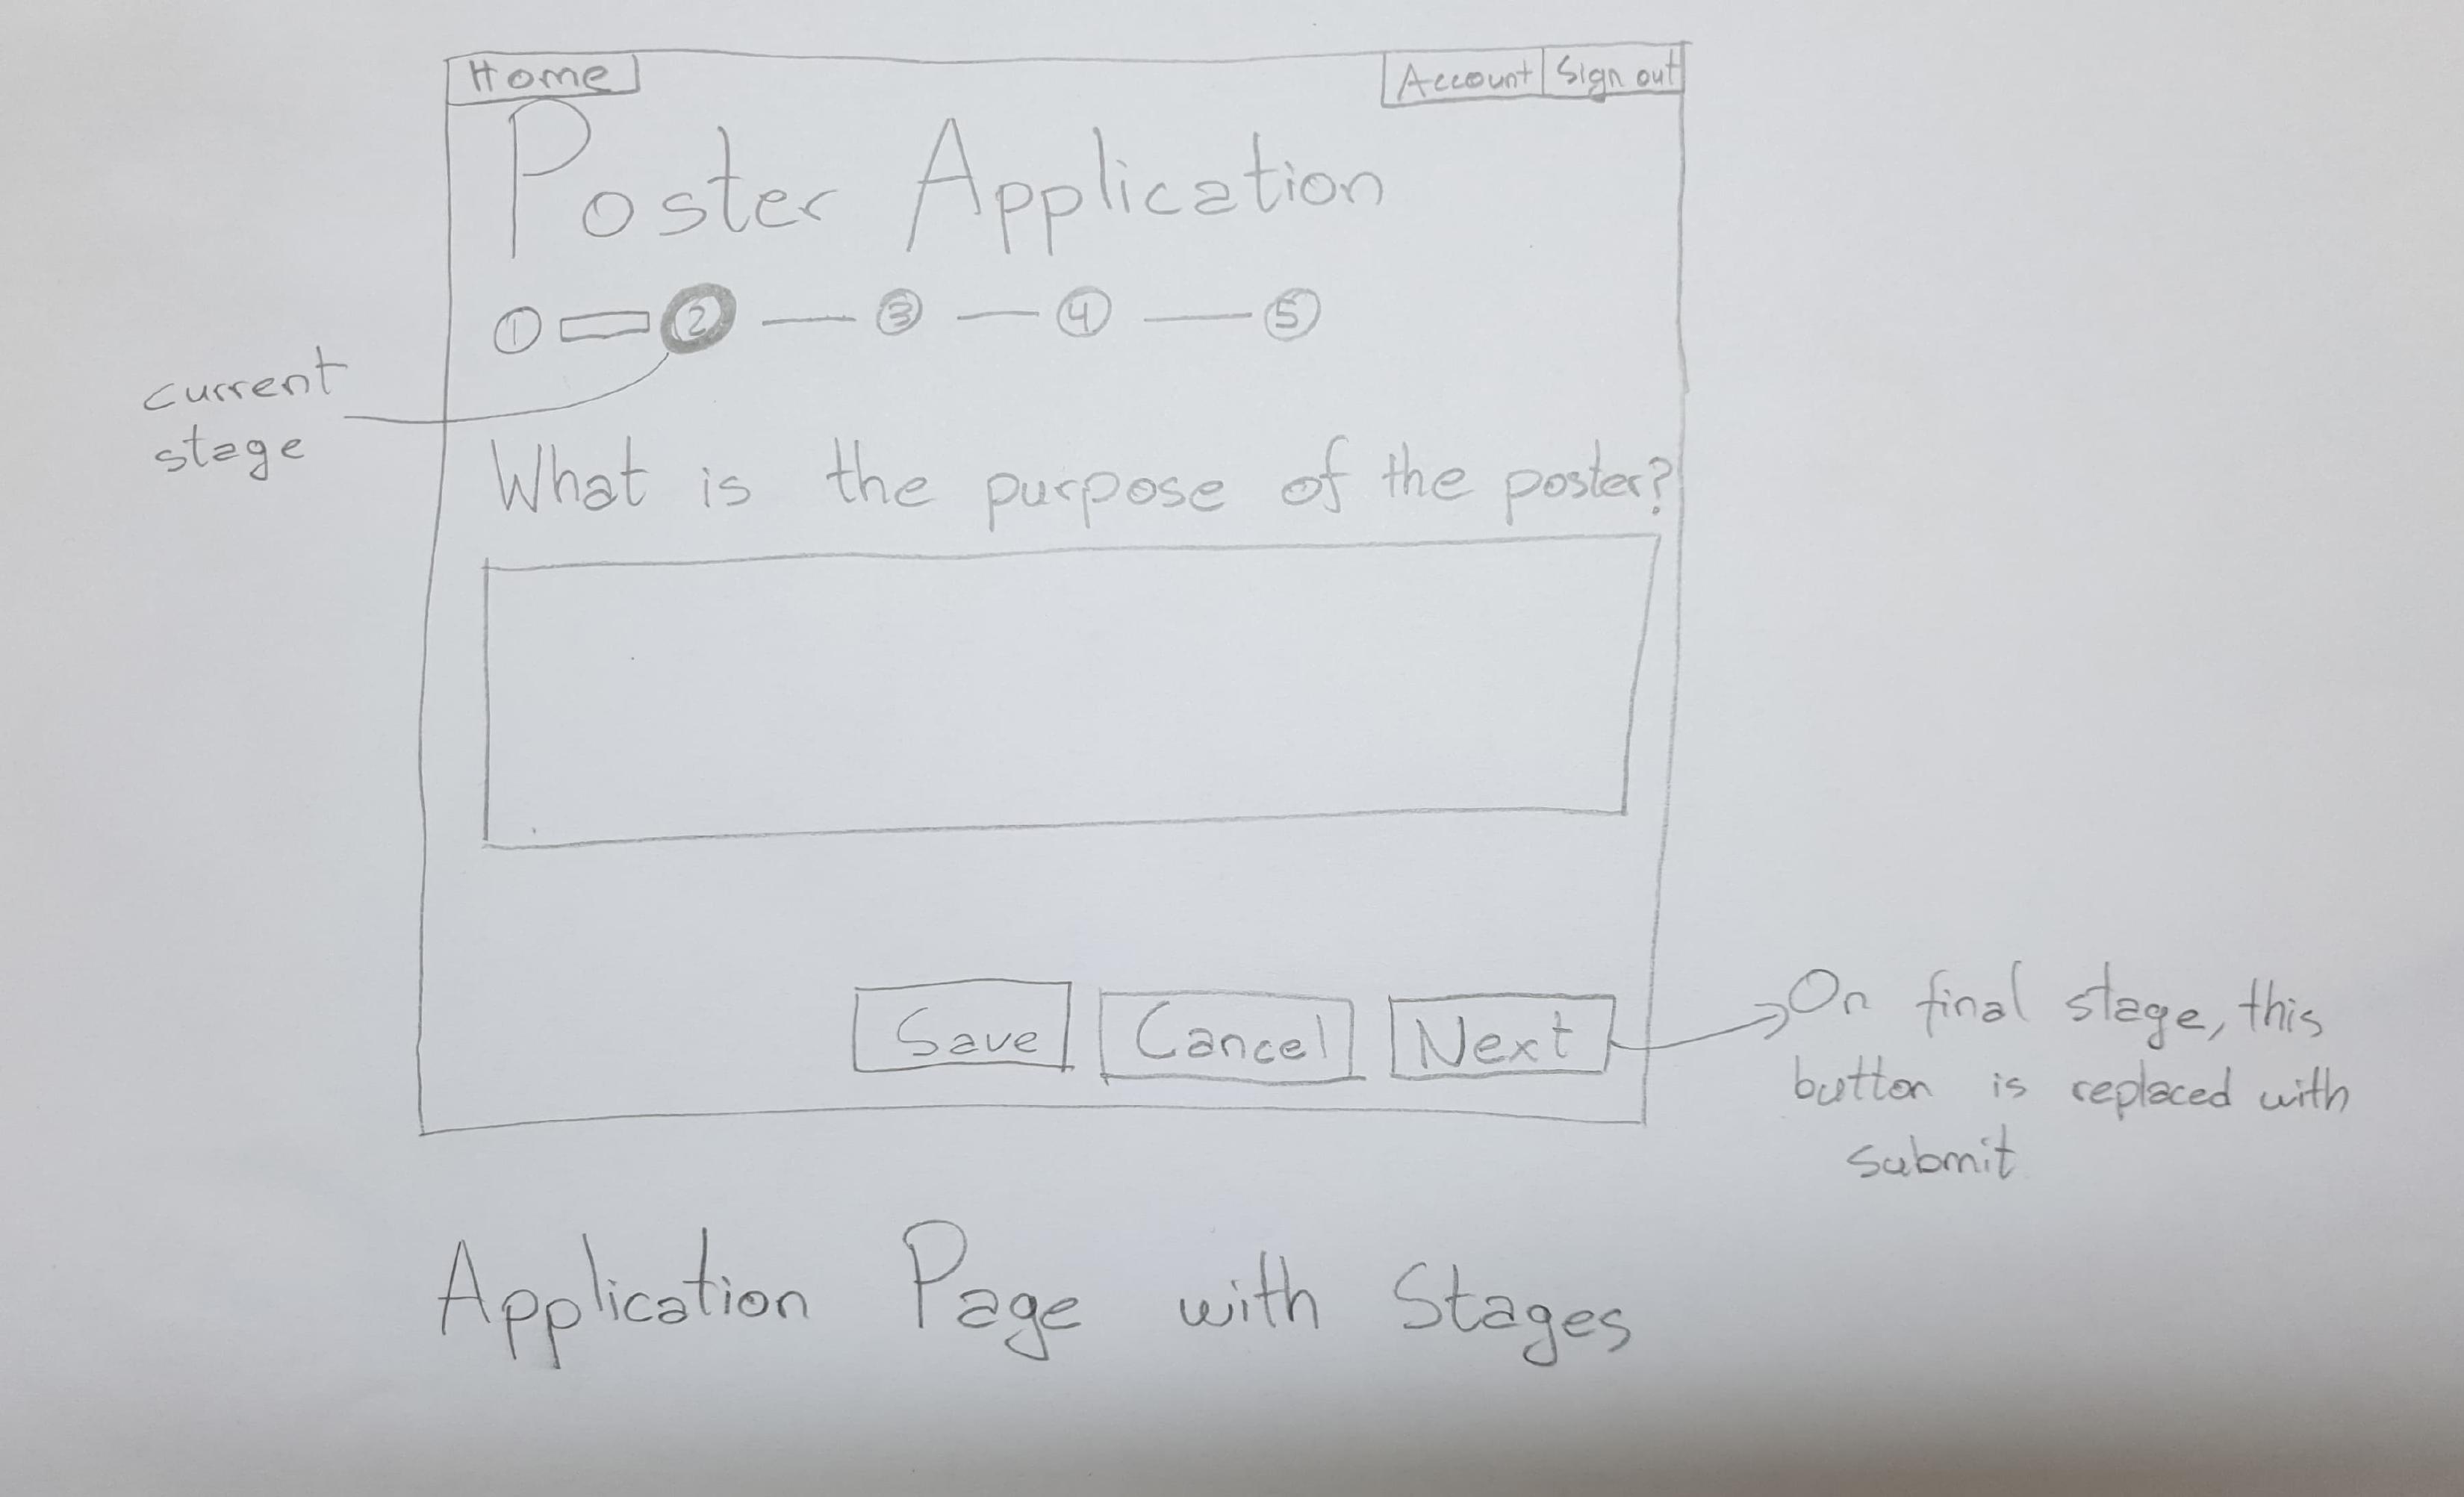 Home
Account
Sign out
Poster Application
1
2
3
4
5
current
stage
What is the purpose of the poster?
Save
Cancel
Next
On final stage, this
button is replaced with
submit
Application Page with Stages